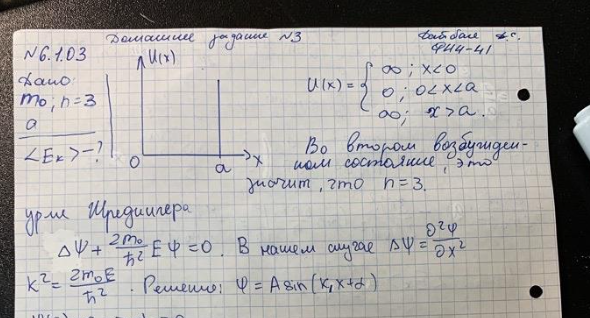 Домашнее задание №3
ФН4-41
№6.1.03
Дано:
m₀, n=3
a
<Eₖ>-?
U(x)
0 a x
U(x) = { ∞; x<0
0; 0<x<a
∞; x>a.
Во втором возбужден-
ном состояние, это
значит, что n=3.
урие Шредингера
ΔΨ + 2m₀/ħ² EΨ = 0. В нашем случае ΔΨ = ∂²Ψ/∂x²
k² = 2m₀E/ħ². Решение: Ψ = A sin(k₁x+α)